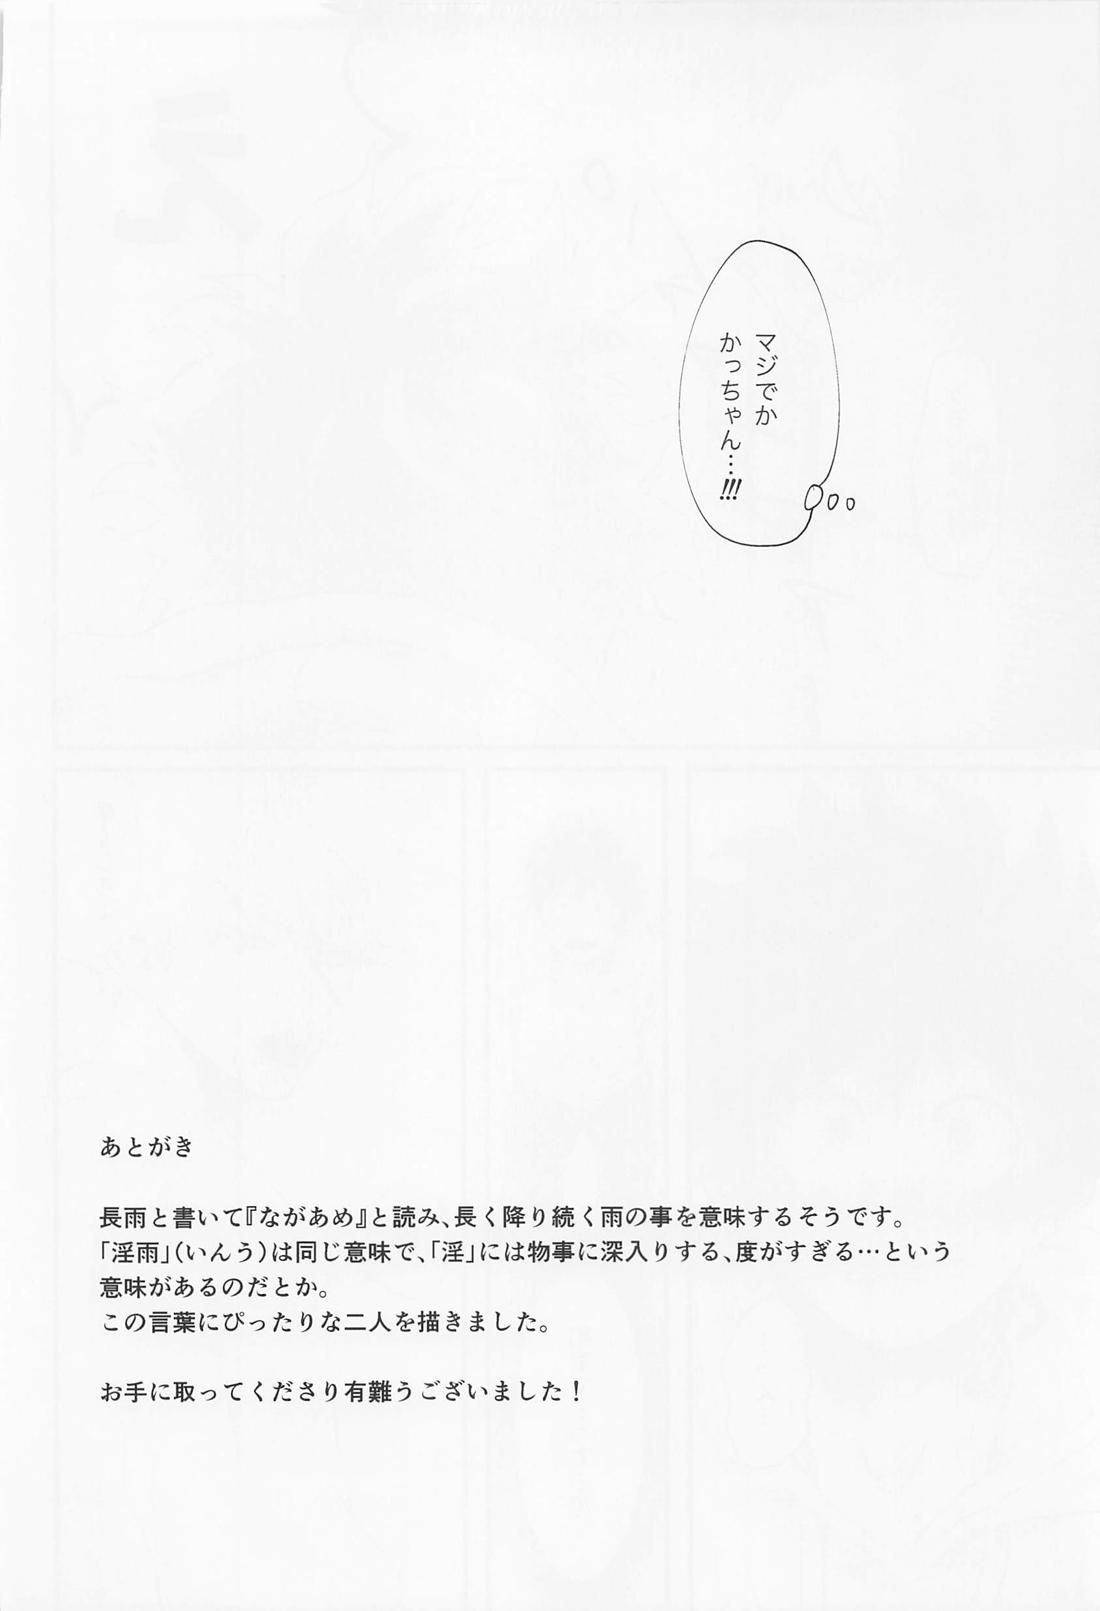 マジでか
かっちゃん…!!!
あとがき
長雨と書いて『ながあめ』と読み、長く降り続く雨の事を意味するそうです。
「淫雨」(いんう)は同じ意味で、「淫」には物事に深入りする、度がすぎる…という
意味があるのだとか。
この言葉にぴったりな二人を描きました。
お手に取ってくださり有難うございました！